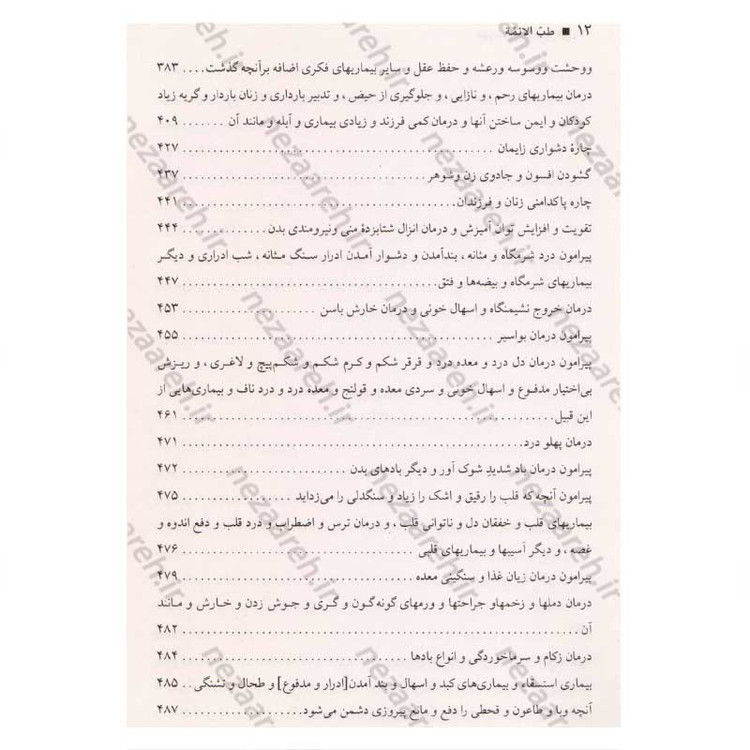 ۱۲ ■ طبّ الائمّة
ووحشت ووسوسه ورعشه و حفظ عقل و سایر بیماریهای فکری اضافه برآنچه گذشت.... ۳۸۳
درمان بیماریهای رحم، و نازایی، و جلوگیری از حیض، و تدبیر بارداری و زنان باردار و گریه زیاد
کودکان و ایمن ساختن آنها و درمان کمی فرزند و زیادی بیماری و آبله و مانند آن ....... ۴۰۹
چارهٔ دشواری زایمان ........ ۴۲۷
گشودن افسون و جادوی زن وشوهر ........ ۴۳۷
چاره پاکدامنی زنان و فرزندان........ ۴۴۱
تقویت و افزایش توان آمیزش و درمان انزال شتابزدهٔ منی ونیرومندی بدن ........ ۴۴۴
پیرامون درد شرمگاه و مثانه، بندآمدن و دشوار آمدن ادرار سنگ مثانه، شب ادراری و دیگر
بیماریهای شرمگاه و بیضه‌ها و فتق........ ۴۴۷
درمان خروج نشیمنگاه و اسهال خونی و درمان خارش باسن ........ ۴۵۳
پیرامون درمان بواسیر ........ ۴۵۵
پیرامون درمان دل درد و معده درد و قرقر شکم و کرم شکم و شکم‌پیچ و لاغری، و ریزش
بی‌اختیار مدفوع و اسهال خونی و سردی معده و قولنج و معده درد و درد ناف و بیماری‌هایی از
این قبیل........ ۴۶۱
درمان پهلو درد........ ۴۷۱
پیرامون درمان باد شدیدِ شوک آور و دیگر بادهای بدن ........ ۴۷۲
پیرامون آنچه که قلب را رقیق و اشک را زیاد و سنگدلی را می‌زداید ........ ۴۷۵
بیماریهای قلب و خفقان دل و ناتوانی قلب، و درمان ترس و اضطراب و درد قلب و دفع اندوه و
غصه، و دیگر آسیبها و بیماریهای قلبی ........ ۴۷۶
پیرامون درمان زیان غذا و سنگینی معده ........ ۴۷۹
درمان دملها و زخمهاو جراحتها و ورمهای گونه‌گون و گری و جوش زدن و خارش و مانند
آن ........ ۴۸۲
درمان زکام و سرماخوردگی و انواع بادها ........ ۴۸۴
بیماری استسقاء و بیماری‌های کبد و اسهال و بند آمدن[ادرار و مدفوع] و طحال و تشنگی.. ۴۸۵
آنچه وبا و طاعون و قحطی را دفع و مانع پیروزی دشمن می‌شود........ ۴۸۷
nezaareh.ir